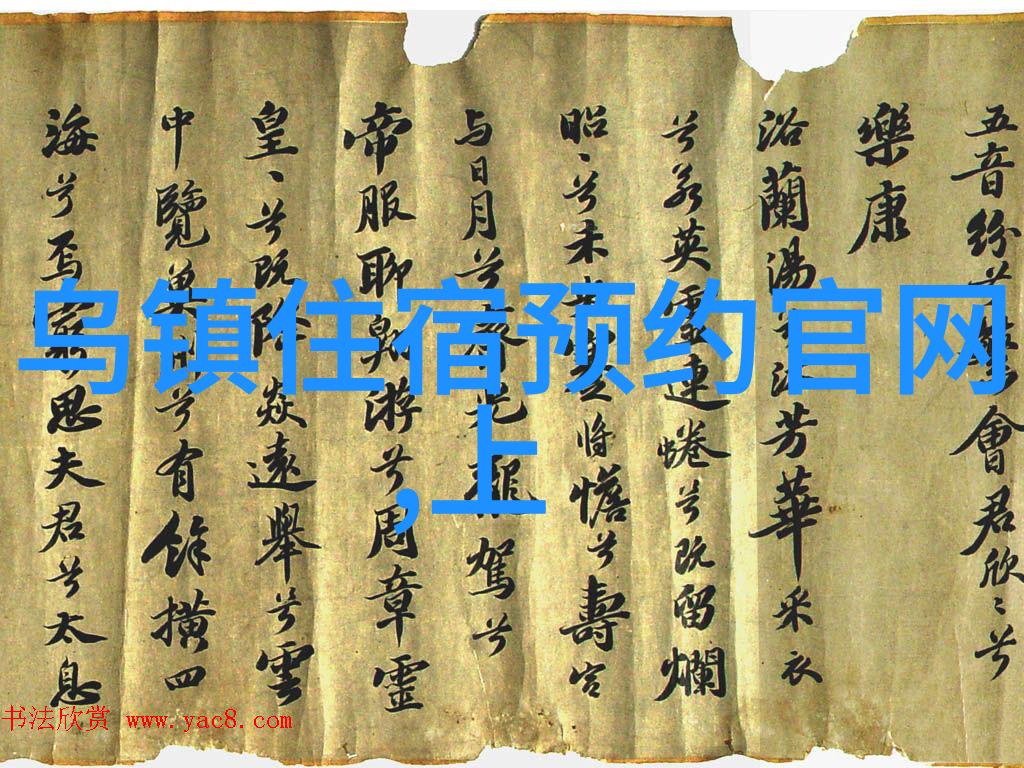 五音紛兮繁會君欣〻兮
樂康
浴蘭湯兮沐芳華采衣
兮若英靈連蜷兮既留爛
昭〻兮未央蹇将憺兮壽宮
与日月兮齊光龍駕兮
帝服聊翱游兮周章靈
皇〻兮既降猋遠舉兮雲
中覽冀州兮有餘横四
海兮焉窮思夫君兮太息
乌镇住宿预约官网
,上
书法欣赏 www.yac8.com